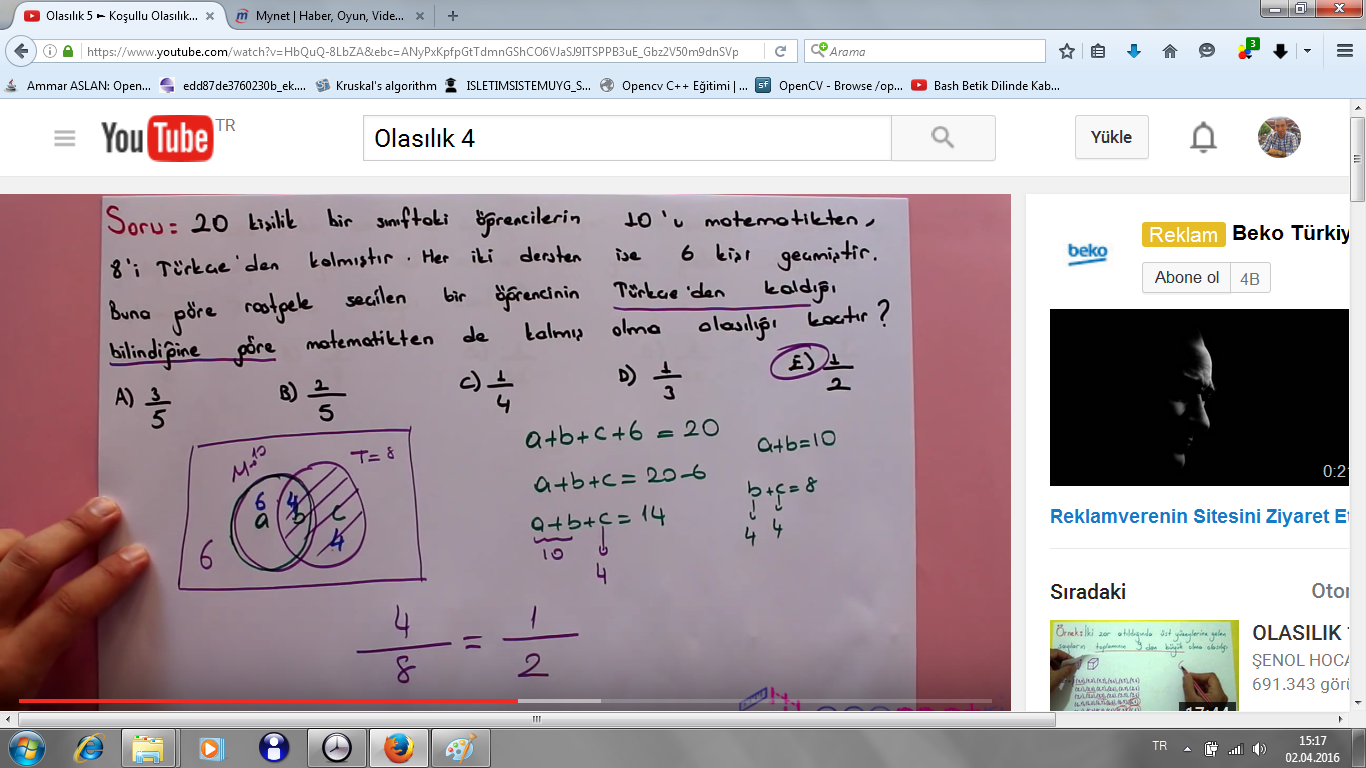 Olasılık 5 ► Koşullu Olasılık...
Mynet | Haber, Oyun, Vide...
https://www.youtube.com/watch?v=HbQuQ-8LbZA&ebc=ANyPxKpfpGtTdmnGShCO6VJaSJ9ITSPPB3uE_Gbz2V50m9dnSVp
Arama
3
Ammar ASLAN: Open...
edd87de3760230b_ek....
Kruskal's algorithm
ISLETIMSISTEMUYG_S...
Opencv C++ Eğitimi | ...
OpenCV - Browse /op...
Bash Betik Dilinde Kab...
YouTube TR
Olasılık 4
Yükle
Soru = 20 kişilik bir sınıftaki öğrencilerin 10'u matematikten,
8'i Türkçe'den kalmıştır. Her iki dersten ise 6 kişi geçmiştir.
Buna göre rastgele seçilen bir öğrencinin Türkçe'den kaldığı
bilindiğine göre matematikten de kalmış olma olasılığı kaçtır?
A) 3/5 B) 2/5 C) 1/4 D) 1/3 E) 1/2
M=10 T=8
6 4
a b c
4
6
a+b+c+6 = 20
a+b+c = 20-6
a+b+c = 14
10 4
a+b=10
b+c=8
4 4
4/8 = 1/2
beko
Reklam Beko Türkiy
Abone ol 4B
0:21
Reklamverenin Sitesini Ziyaret Et
Sıradaki
Oton
Örnek: İki zar atıldığında üst yüzeylerine gelen
sayıların toplamının 9'dan büyük olma olasılığı
17:44
OLASILIK
ŞENOL HOCA
691.343 görü
TR
15:17
02.04.2016